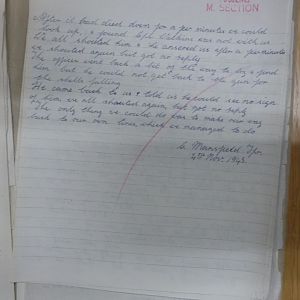 M. SECTION
After it had died down for a few minutes we could
look up, & found L/Cpl Williams was not with us.
We all shouted him & he answered us after a few minutes
we shouted again but got no reply.
The officer went back a bit of the way to try & find
him but he could not get back to the gun for
the shells falling.
He came back to us & told us he could see no sign
of him, we all shouted again, but got no reply.
The only thing we could do was to make our way
back to our own lines, which we managed to do.
C. Mansfield Tpr.
4th Nov. 1943.